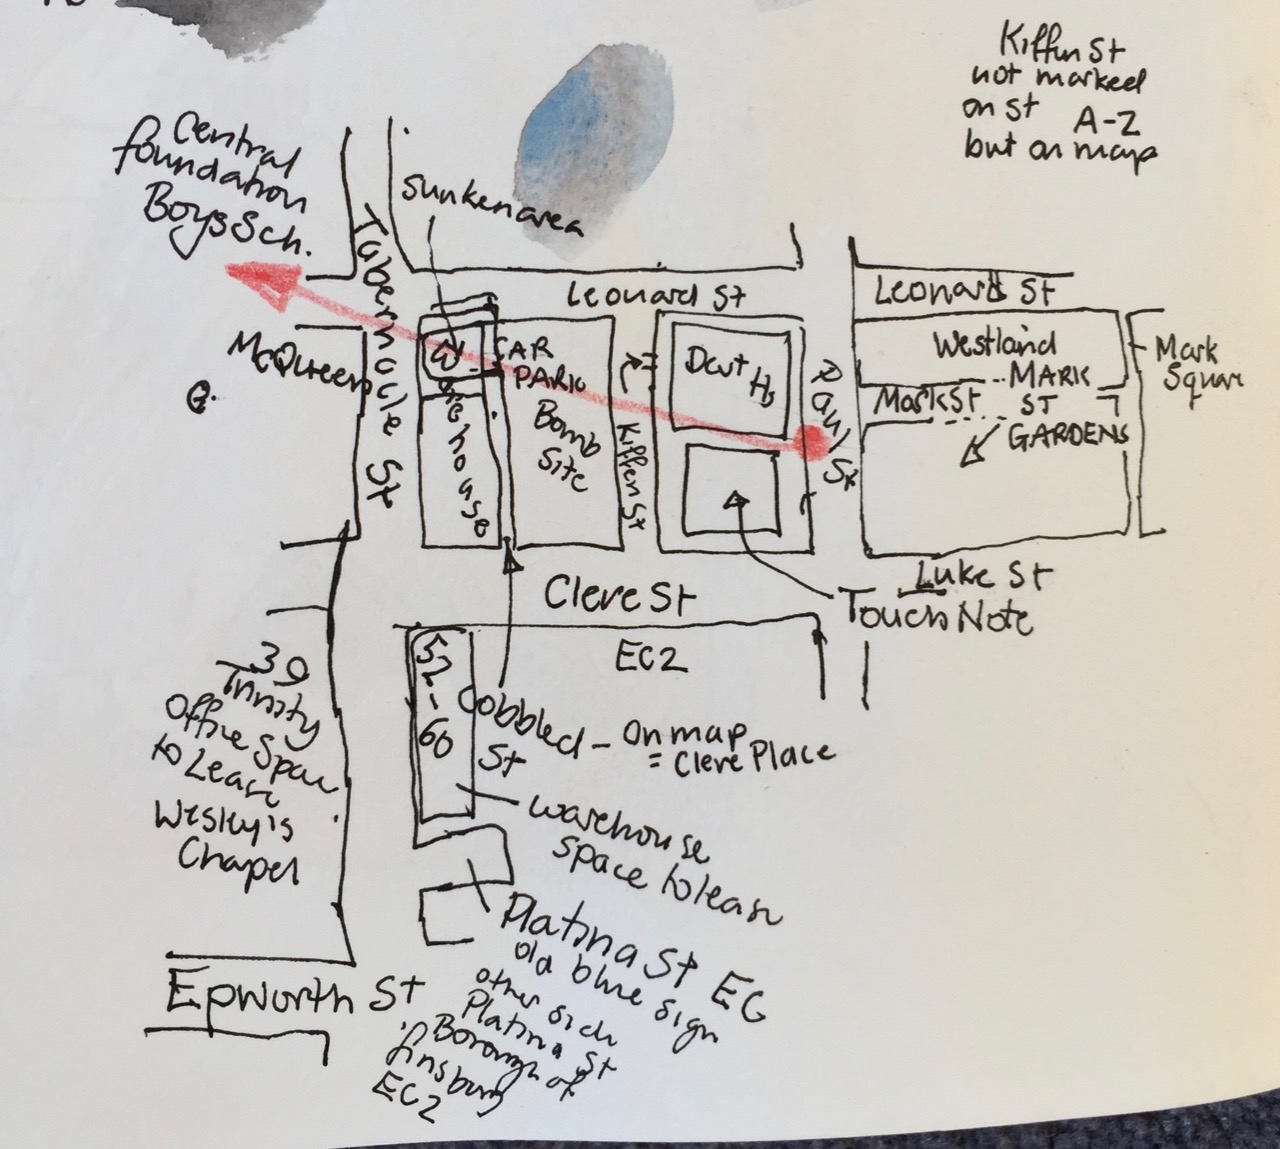 Kiffen St
not marked
on St A-Z
but on map
Central
foundation
Boys Sch.
sunken area
Tabernacle St
Leonard St
Leonard St
McQueen
CAR
PARK
Bomb
Site
Warehouse
Kiffen St
Paul St
Westland
MARK
ST
GARDENS
Mark St
Mark
Square
Cleve St
Luke St
Touch Note
EC2
52
-
60
Cobbled
St
- on map
= Cleve Place
39
Trinity
Office Space
to Lease
Wesley's
Chapel
warehouse
space to lease
Platina St EC
old blue sign
other side
Platina St
Borough of
finsbury
EC2
Epworth St